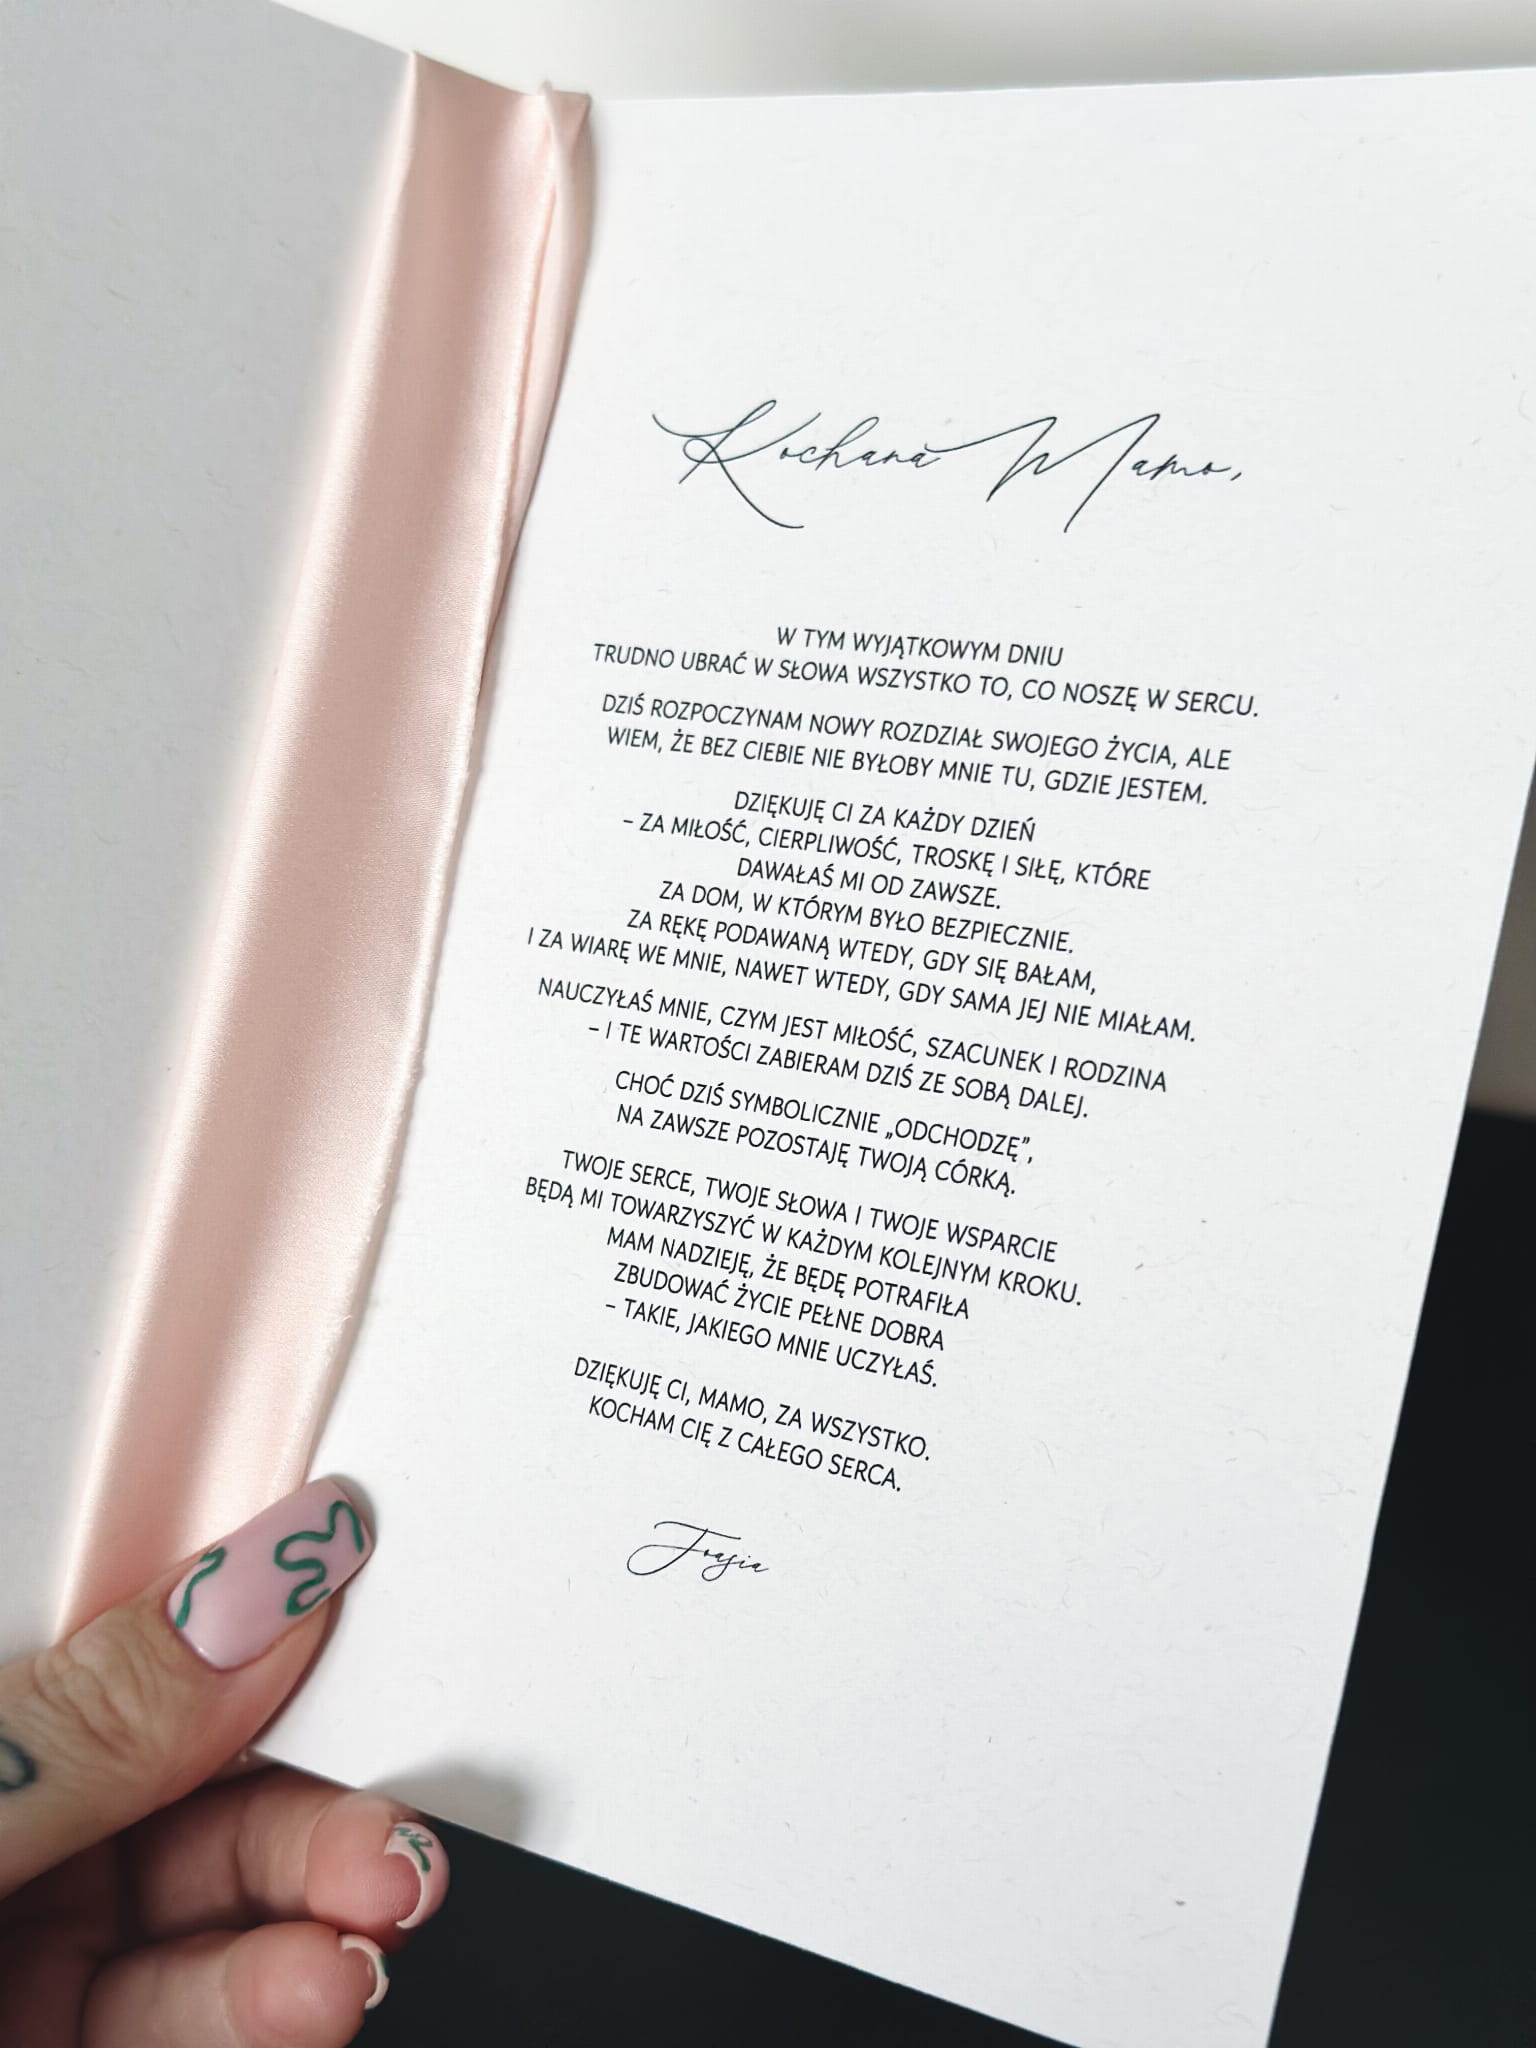 Kochana Mamo,
W TYM WYJĄTKOWYM DNIU
TRUDNO UBRAĆ W SŁOWA WSZYSTKO TO, CO NOSZĘ W SERCU.
DZIŚ ROZPOCZYNAM NOWY ROZDZIAŁ SWOJEGO ŻYCIA, ALE
WIEM, ŻE BEZ CIEBIE NIE BYŁOBY MNIE TU, GDZIE JESTEM.
DZIĘKUJĘ CI ZA KAŻDY DZIEŃ
– ZA MIŁOŚĆ, CIERPLIWOŚĆ, TROSKĘ I SIŁĘ, KTÓRE
DAWAŁAŚ MI OD ZAWSZE.
ZA DOM, W KTÓRYM BYŁO BEZPIECZNIE.
ZA RĘKĘ PODAWANĄ WTEDY, GDY SIĘ BAŁAM,
I ZA WIARĘ WE MNIE, NAWET WTEDY, GDY SAMA JEJ NIE MIAŁAM.
NAUCZYŁAŚ MNIE, CZYM JEST MIŁOŚĆ, SZACUNEK I RODZINA
– I TE WARTOŚCI ZABIERAM DZIŚ ZE SOBĄ DALEJ.
CHOĆ DZIŚ SYMBOLICZNIE „ODCHODZĘ”,
NA ZAWSZE POZOSTAJĘ TWOJĄ CÓRKĄ.
TWOJE SERCE, TWOJE SŁOWA I TWOJE WSPARCIE
BĘDĄ MI TOWARZYSZYĆ W KAŻDYM KOLEJNYM KROKU.
MAM NADZIEJĘ, ŻE BĘDĘ POTRAFIŁA
ZBUDOWAĆ ŻYCIE PEŁNE DOBRA
– TAKIE, JAKIEGO MNIE UCZYŁAŚ.
DZIĘKUJĘ CI, MAMO, ZA WSZYSTKO.
KOCHAM CIĘ Z CAŁEGO SERCA.